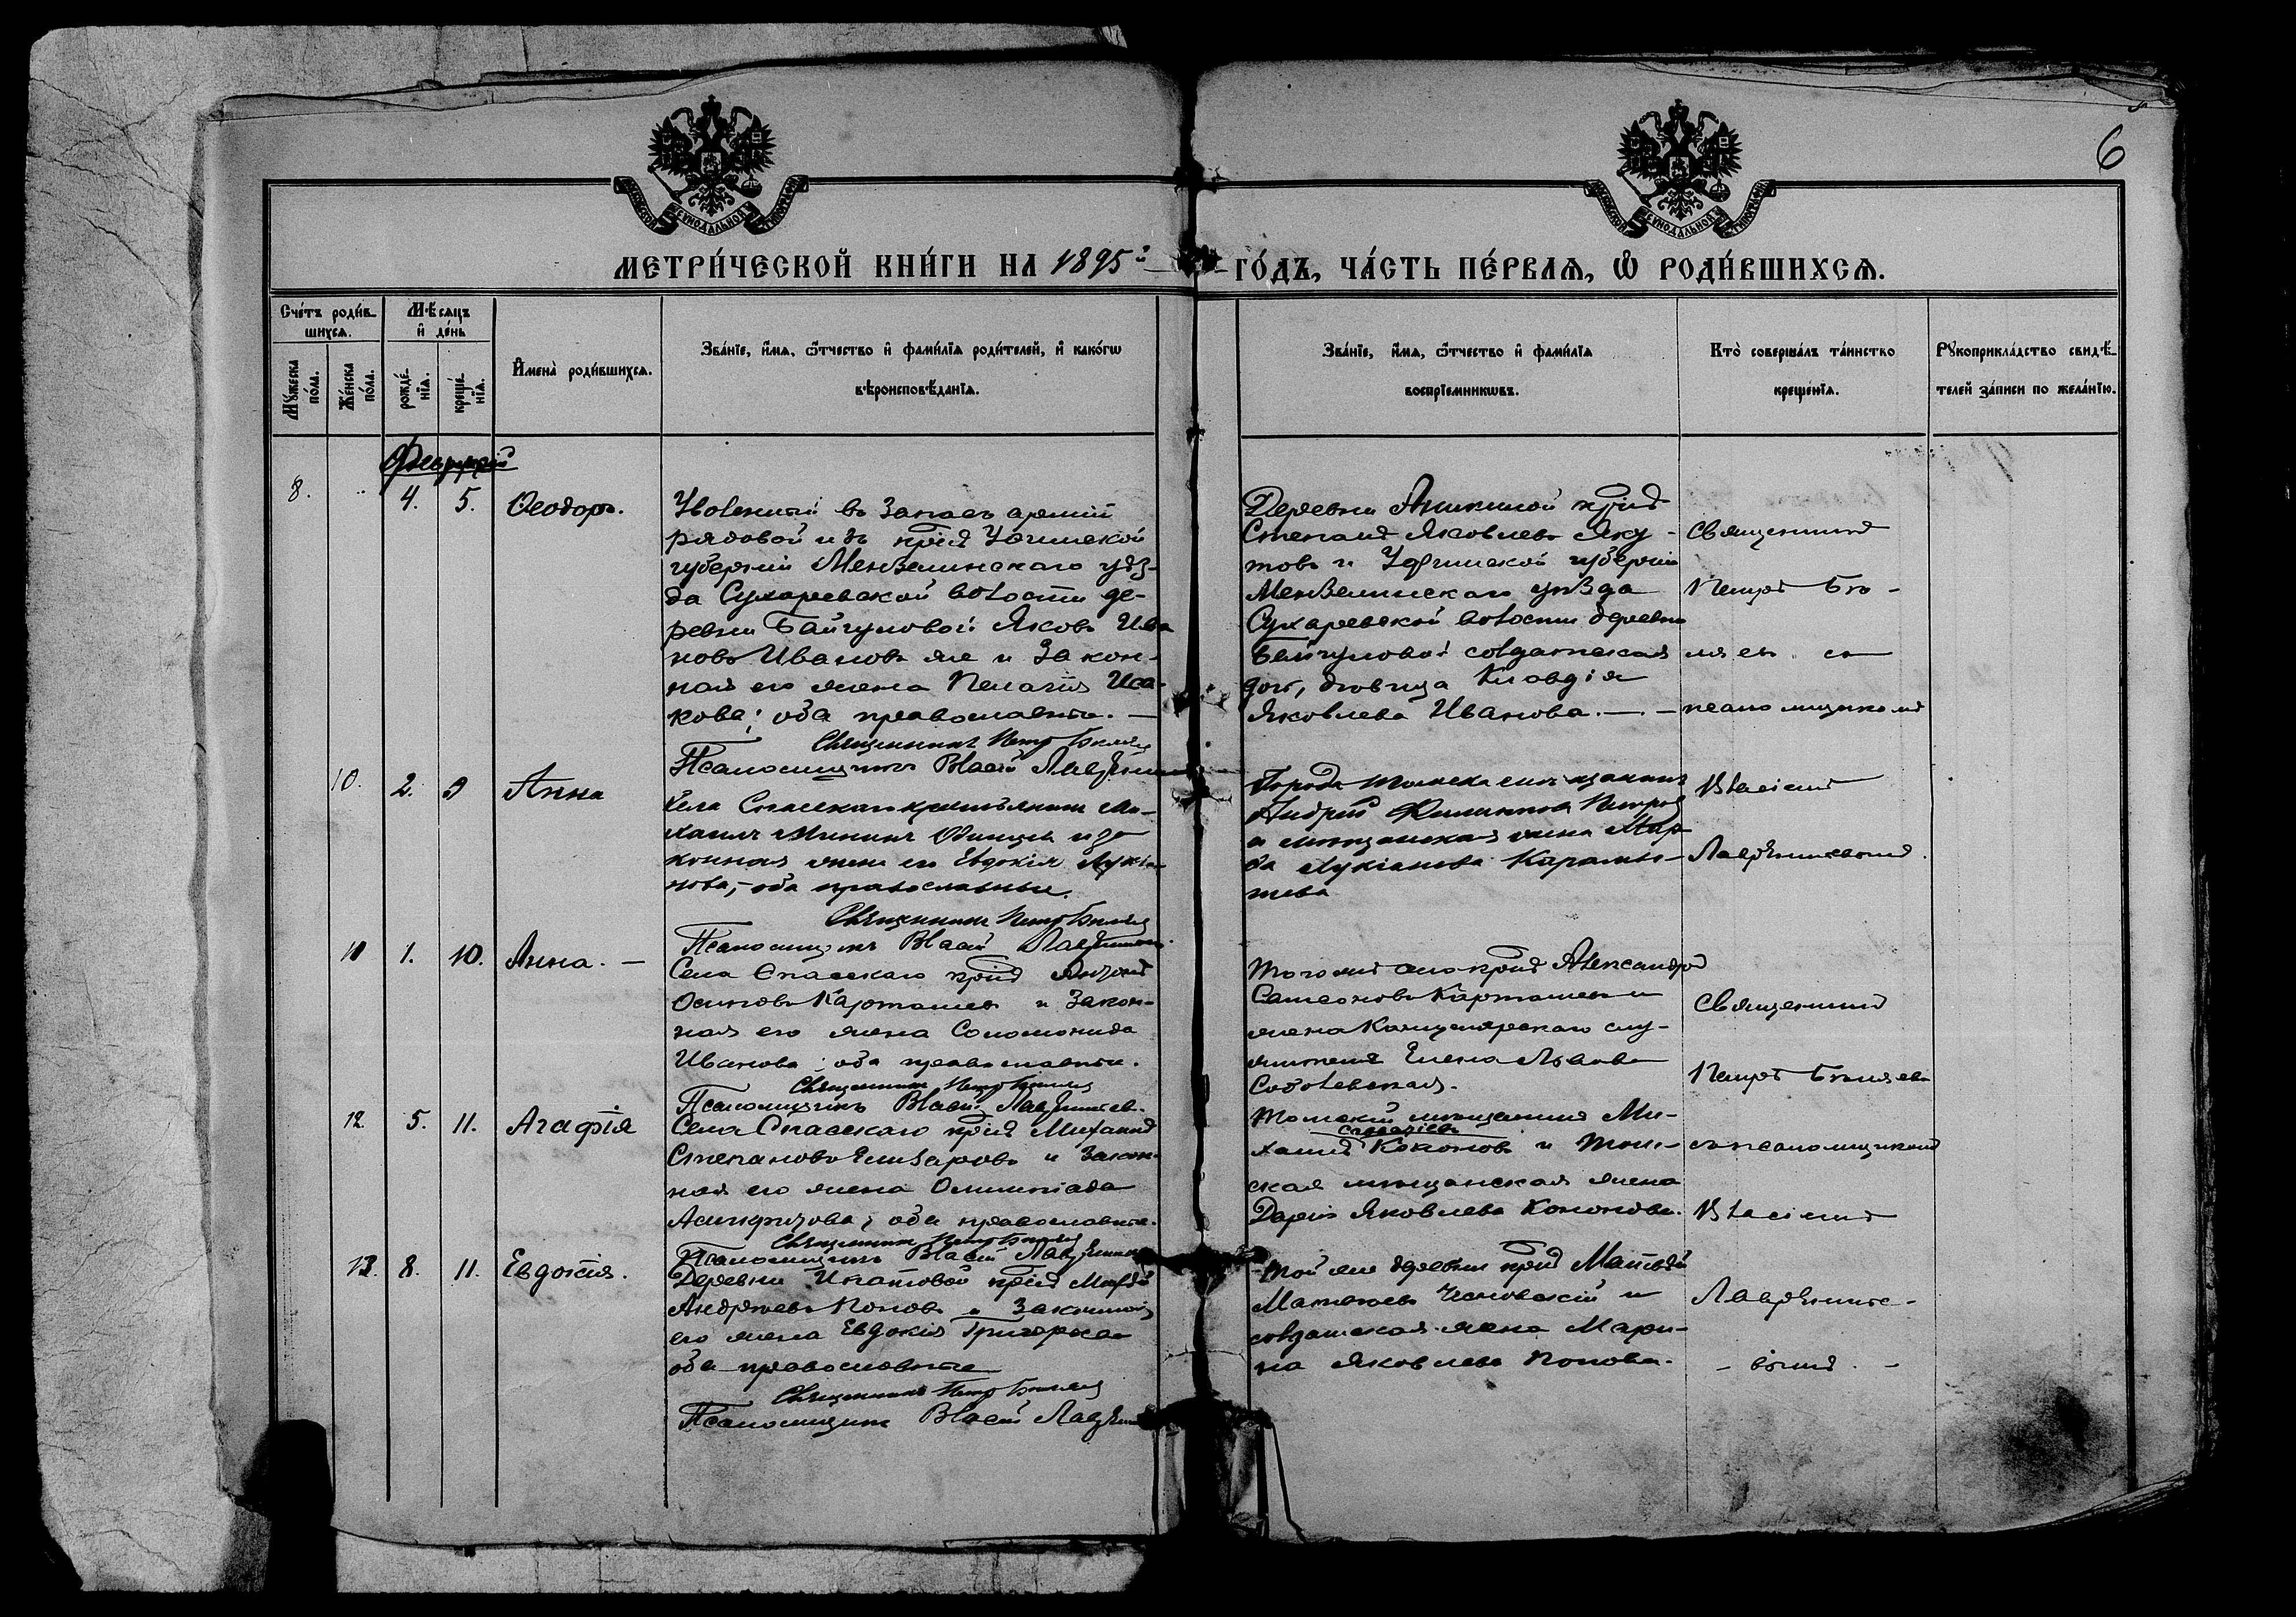 6
МЕТРИ́ЧЕСКОЙ КНИ́ГИ НА 1895й ГО́ДЪ, ЧА́СТЬ ПЕ́РВАЯ, Ѽ РОДИ́ВШИХСЯ.
Сче́тъ роди́в-
шихся.
Мѣ́сяцъ
и҆ де́нь
Мꙋ́жеска
по́ла.
Же́нска
по́ла.
рожде́-
нїя.
креще́-
нїя.
И҆мена̀ роди́вшихся.
Зва́нїе, и҆́мя, ѻ҆́тчество и҆ фами́лїя роди́телей, и҆ како́гѡ
вѣроисповѣ́данїя.
Зва́нїе, и҆́мя, ѻ҆́тчество и҆ фами́лїя
воспрїе́мникѡвъ.
Кто̀ соверша́лъ та́инство
креще́нїя.
Рꙋкоприкла́дство свидѣ́-
телей за́писи по жела́нїю.
Февраль
8.
4.
5.
Ѳеодоръ.
Уволенный въ запасъ армiи
рядовой изъ крест Уфимской
губернiи Мензелинскаго уѣз-
да Сухаревской волости де-
ревни Байгуловой Яковъ Ива
новъ Ивановъ же и закон-
ная его жена Пелагiя Иса-
кова; оба православные. —
Священникъ Петръ Бѣляевъ
Псаломщикъ Власiй
Деревни Аникиной крест
Степанъ Яковлевъ Яку-
товъ и Уфимской губернiи
Мензелинскаго уѣзда
Сухаревской волости деревни
Байгуловой солдатская
дочь, дѣвица Клавдiя
Яковлева Иванова. — —
Священникъ
Петръ Бѣ-
ляевъ съ
псаломщикомъ
10.
2.
9
Анна
Села Спасскаго крестьянинъ Ми-
хаилъ и за-
конная жена его Евдокiя Лукiа-
нова, — оба православные.
Священникъ Петръ Бѣляевъ
Псаломщикъ Власiй
Города Томска мѣщанинъ
Андрей Филипповъ Петровъ
и мѣщанская жена Мар-
ѳа Лукiанова
Власiемъ
11
1.
10.
Анна. —
Села Спасскаго крест
Осиповъ Карташевъ и закон-
ная его жена Соломонида
Иванова; оба православные.
Священникъ Петръ Бѣляевъ
Псаломщикъ Власiй
Того же села крест Александръ
Самсоновъ Карташевъ и
жена Канцелярскаго слу-
жителя Елена Львова
Соболевская.
Священникъ
Петръ Бѣляевъ
12.
5.
11.
Агафiя
Села Спасскаго крест Михаилъ
Степановъ Елизаровъ и закон-
ная его жена Олимпiада
оба православные.
Священникъ Петръ Бѣляевъ
Псаломщикъ Власiй
Томскiй мѣщанинъ Ми-
хаилъ Кононовъ и Том-
ская мѣщанская жена
Дарiя Яковлева Кононова.
съ псаломщикомъ
Власiемъ
13.
8.
11.
Евдокiя.
Деревни Ипатовой крест
Андреевъ Поповъ и законная
его жена Евдокiя Григорьева
оба православные
Священникъ Петръ Бѣляевъ
Псаломщикъ Власiй
Той же деревни крест Матвѣй
Матвѣевъ и
солдатская жена Мари-
на Яковлева Попова.